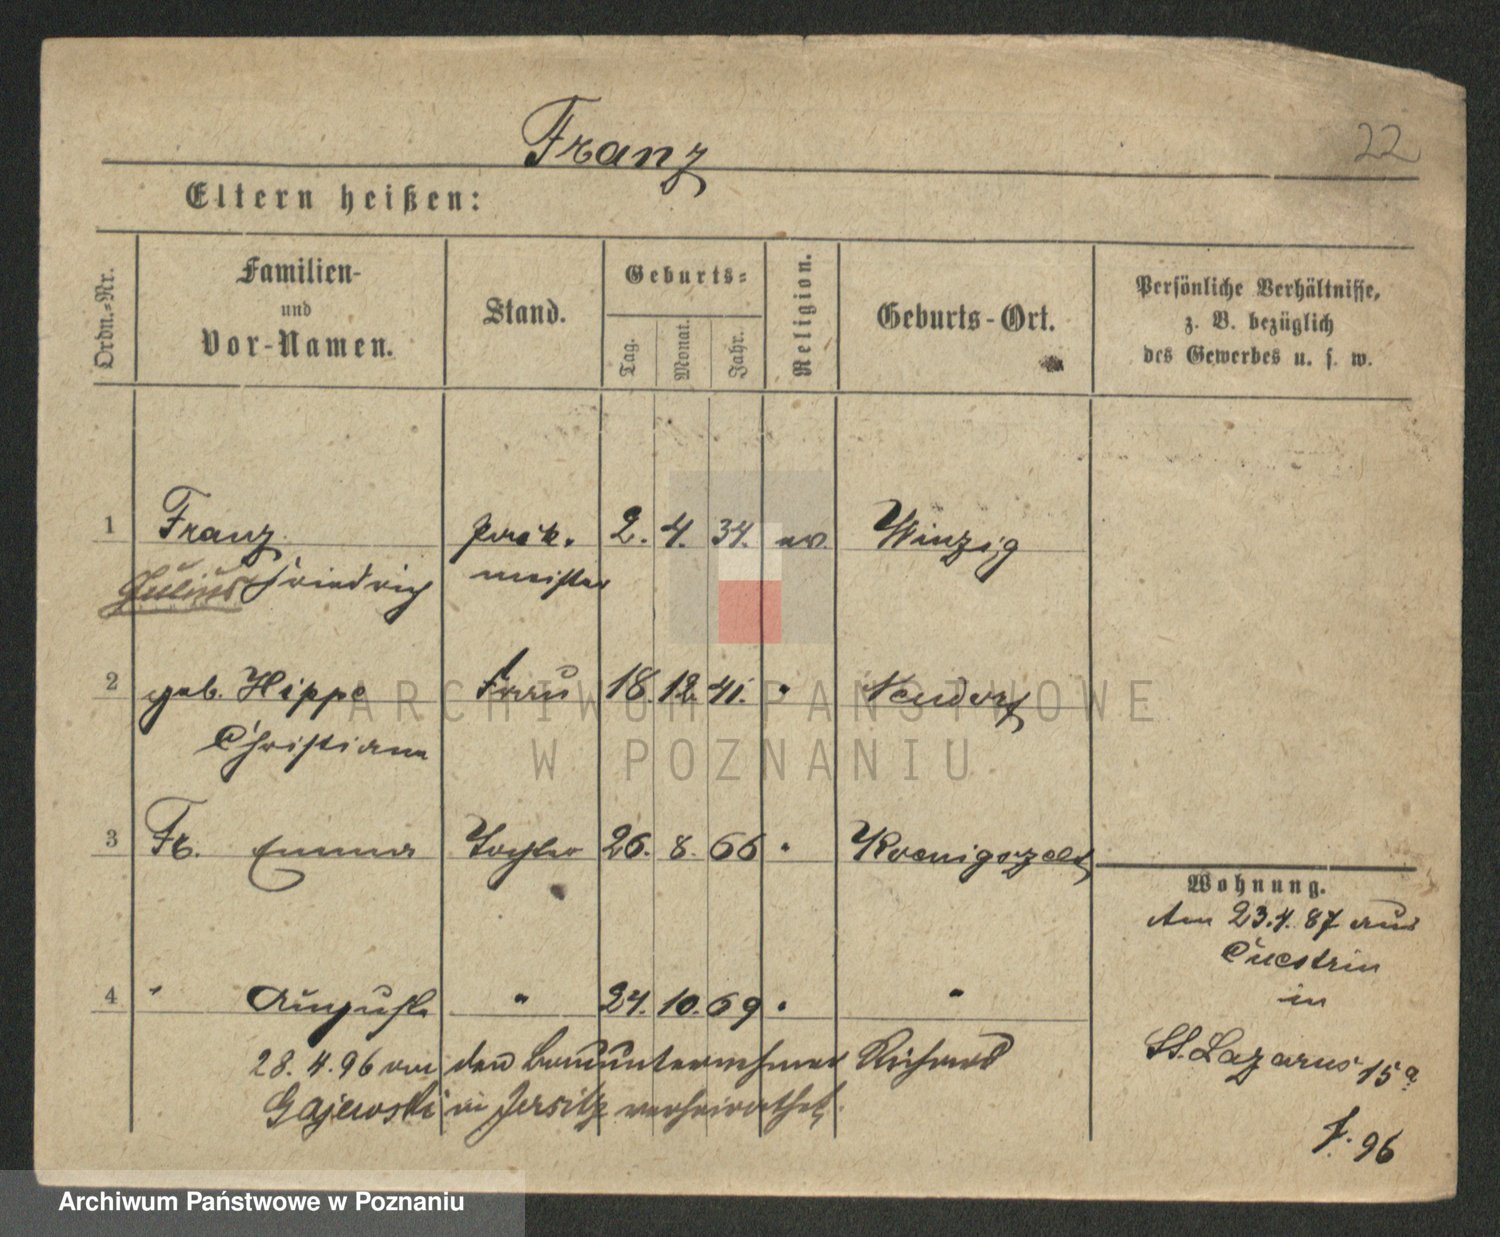 Franz
22
Eltern heißen:
Ordn.-Nr.
Familien-
und
Vor-Namen.
Stand.
Geburts-
Tag.
Monat.
Jahr.
Religion.
Geburts-Ort.
Persönliche Verhältnisse,
z. B. bezüglich
des Gewerbes u. s. w.
1 Franz 2. 4. 34. ev. Winzig
Julius Friedrich meister
2 geb. Hippe Frau 18. 12. 41. " Neudorf
Christiane
3 Fr. Emma Tochter 26. 8. 66 " Koenigszelt
Wohnung.
Am 23.4.87 aus
Cuestrin
in
St. Lazarus 15a
4 " Auguste " 24. 10. 69 " "
28.4.96 an den Bauunternehmer Richard
Gajewski in Jersitz verheirathet.
f. 96
ARCHIWUM PAŃSTWOWE
W POZNANIU
Archiwum Państwowe w Poznaniu